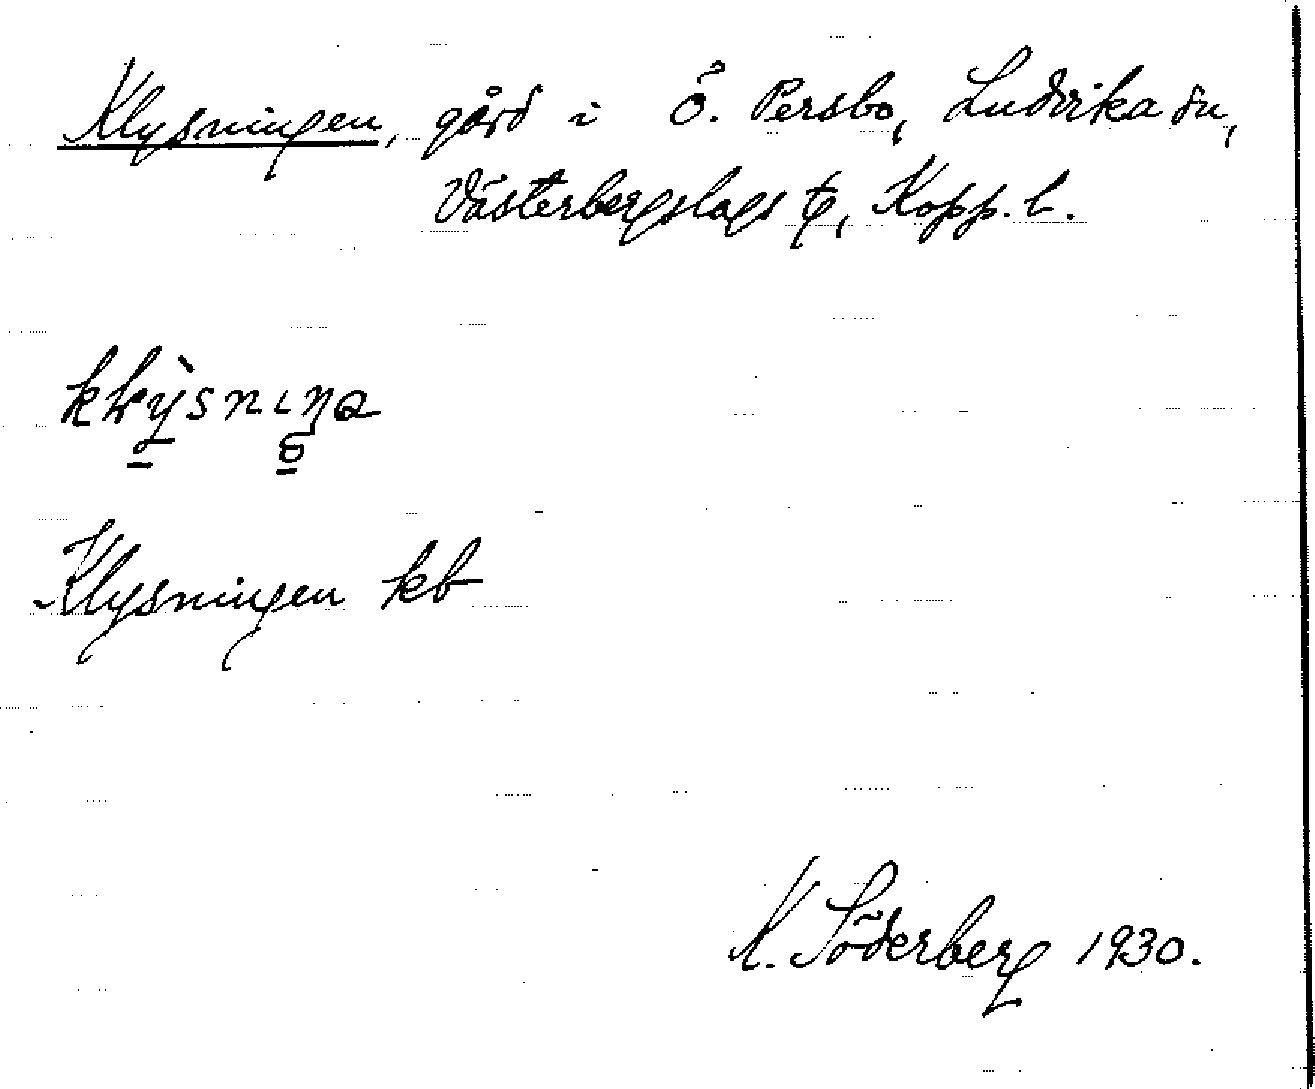 Klysningen, gård i Ö. Persbo, Ludvika sn,
Västerbergslags , Kopp. l.
Klysningen kb
K. Söderberg 1930.